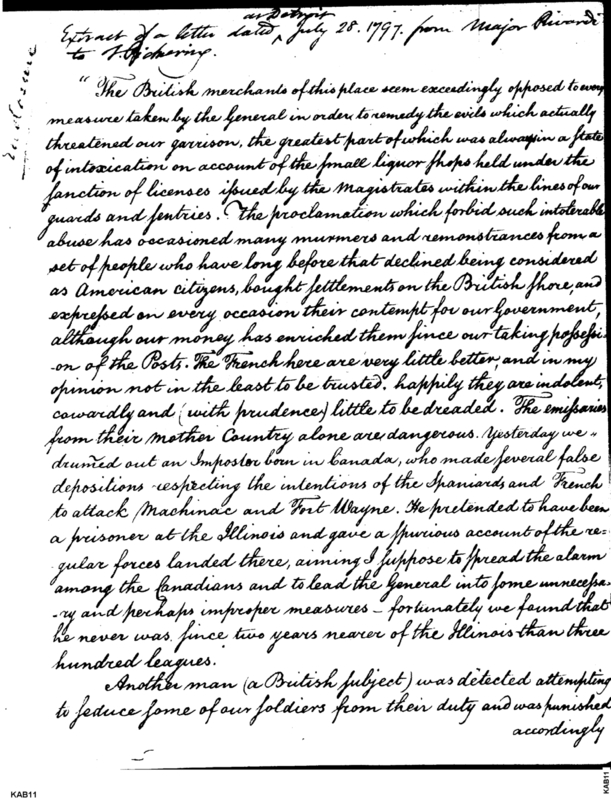 at Detroit
Extract of a letter dated, July 28. 1797. from Major Rivardi
to T. Pickering.
Enclosure
"The British merchants of this place seem exceedingly opposed to every
measure taken by the General in order to remedy the evils which actually
threatened our garrison, the greatest part of which was always in a State
of intoxication on account of the small liquor shops held under the
sanction of licenses issued by the Magistrates within the lines of our
guards and sentries. The proclamation which forbid such intolerable
abuse has occasioned many murmers and remonstrances from a
set of people who have long before that declined being considered
as American citizens, bought settlements on the British shore, and
expressed on every occasion their contempt for our Government,
although our money has enriched them since our taking possessi-
-on of the Posts. The French here are very little better, and in my
opinion not in the least to be trusted. happily they are indolent,
cowardly and (with prudence) little to be dreaded. The emissaries
from their mother Country alone are dangerous. Yesterday we
drumed out an Impostor born in Canada, who made several false
depositions respecting the intentions of the Spaniards and French
to attack Machinac and Fort Wayne. He pretended to have been
a prisoner at the Illinois and gave a spurious account of the re-
-gular forces landed there, aiming I suppose to spread the alarm
among the Canadians and to lead the General into some unnecessa-
-ry and perhaps improper measures – fortunately we found that
he never was since two years nearer of the Illinois than three
hundred leagues.
Another man (a British subject) was detected attempting
to seduce some of our soldiers from their duty and was punished
accordingly
KAB11
KAB11